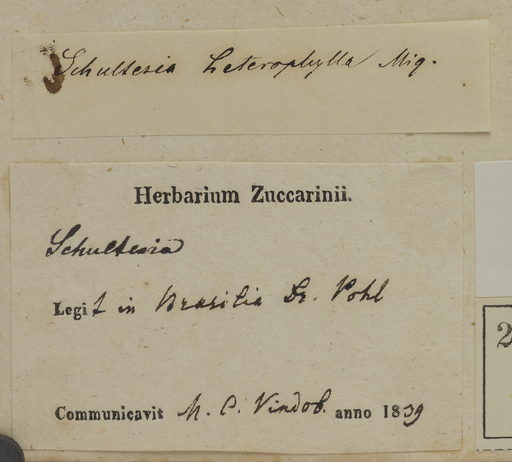 Schultesia heterophylla Miq.
Herbarium Zuccarinii.
Schultesia
Legit in Brasilia Dr. Pohl
Communicavit M. C. Vindob. anno 1839
2